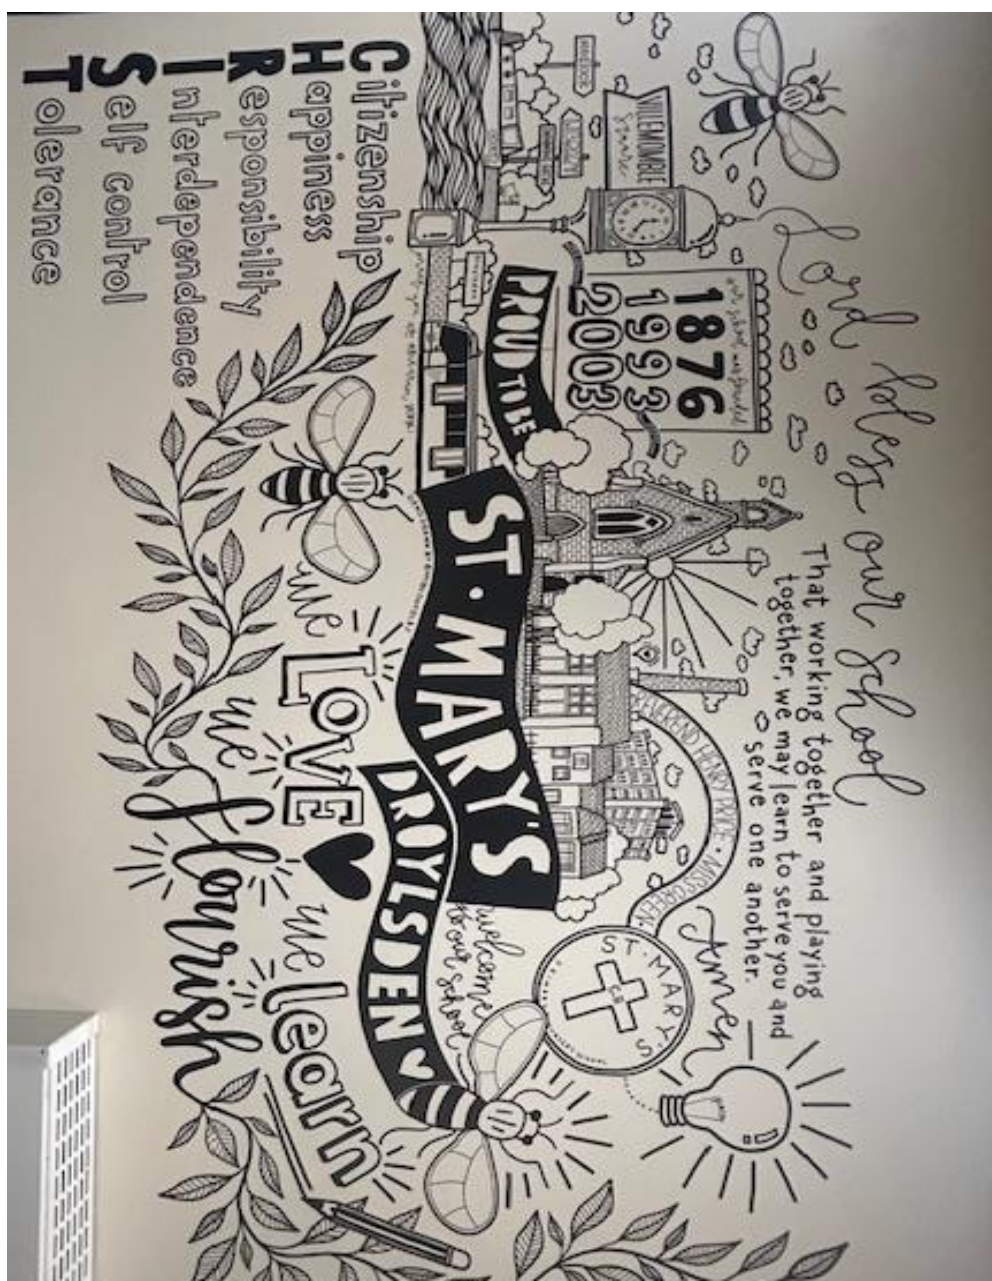 Lord bless our school
That working together and playing
together, we may learn to serve you and
serve one another.
Amen
VILLEMOMBLE
Square
our school was founded
1876
1993
2003
REVEREND HENRY PRICE • MISS GREEN •
ST • MARY'S
CE
PROUD TO BE
ST • MARY'S
DROYLSDEN
welcome
to our school
we Love
we learn
we flourish
Citizenship
Happiness
Responsibility
Interdependence
Self control
Tolerance